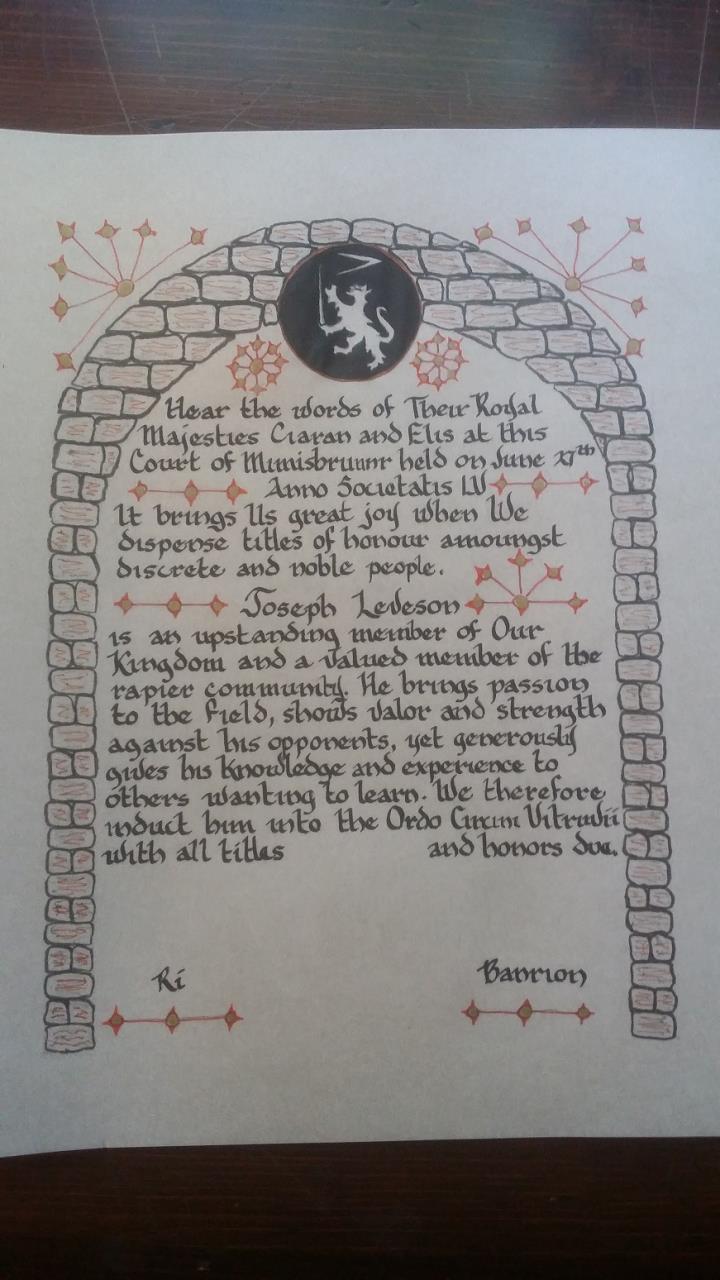 Hear the words of Their Royal
Majesties Ciaran and Elis at this
Court of Mimisbrunnr held on June XIth
Anno Societatis LV
It brings Us great joy when We
dispense titles of honour amoungst
discrete and noble people.
Joseph Leveson
is an upstanding member of Our
Kingdom and a valued member of the
rapier community. He brings passion
to the field, shows valor and strength
against his opponents, yet generously
gives his knowledge and experience to
others wanting to learn. We therefore
induct him into the Ordo Vitruvii
with all titles and honors due.
Rí Banrion